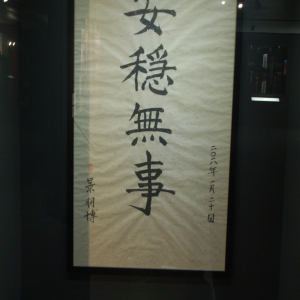 安穩無事
二〇一八年一月二十日
景羽博